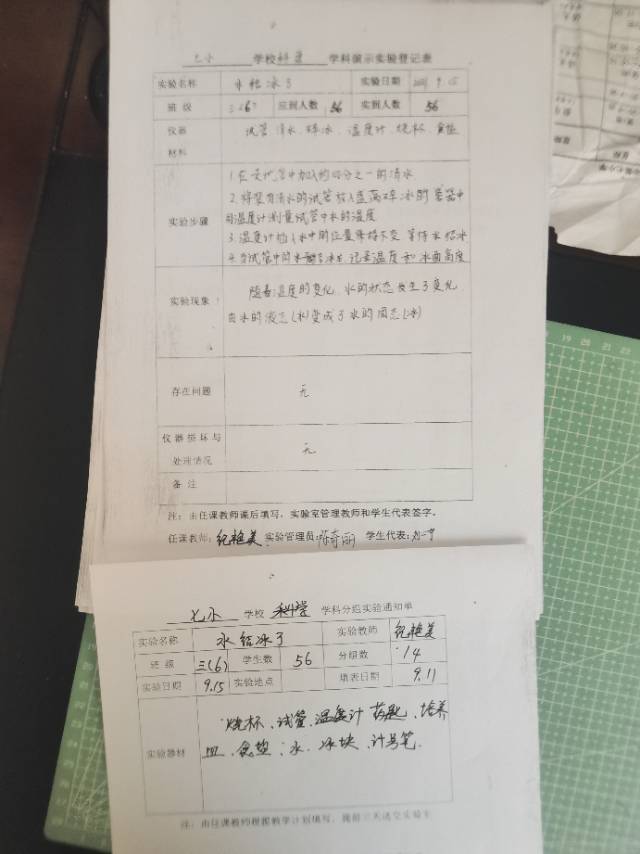 七小 学校 科学 学科演示实验登记表
实验名称 水结冰了 实验日期 9.15
班级 三(6) 应到人数 56 实到人数 56
仪器 试管 清水 碎冰 温度计 烧杯 食盐
材料
1.在试管中加入约四分之一的清水
2.将装有清水的试管放入盛满碎冰的容器中
实验步骤 用温度计测量试管中水的温度
3.温度计插入水中的位置保持不变 等待水结冰
4.当试管中的水 冰 记录温度和冰面高度
实验现象 随着温度的变化,水的状态发生了变化
由水的液态(水)变成了水的固态(冰)
存在问题 无
仪器损坏与
处理情况 无
备注
注:由任课教师课后填写,实验室管理教师和学生代表签字。
任课教师:纪艳美 实验管理员:陈奇丽 学生代表:
七小 学校 科学 学科分组实验通知单
实验名称 水结冰了 实验教师 纪艳美
班级 三(6) 学生数 56 分组数 14
实验日期 9.15 实验地点 填表日期 9.11
烧杯、试管、温度计 药匙、培养
实验器材 皿、食盐、水、冰块、计号笔
注:由任课教师根据教学计划填写,提前三天送交实验室